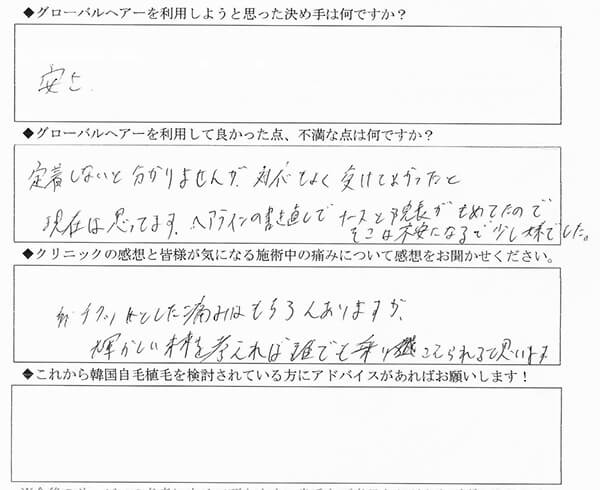 ◆グローバルヘアーを利用しようと思った決め手は何ですか？
安さ.
◆グローバルヘアーを利用して良かった点、不満な点は何ですか？
定着しないと分かりませんが、対応もよく受けてよかったと
現在は思ってます。ヘアラインの書き直しでナースと院長がもめてたので
そこは不安になるで少し嫌でした。
◆クリニックの感想と皆様が気になる施術中の痛みについて感想をお聞かせください。
チクッとした痛みはもちろんありますが、
輝かしい未来を考えれば誰でも乗り越こえられると思います
◆これから韓国自毛植毛を検討されている方にアドバイスがあればお願いします！